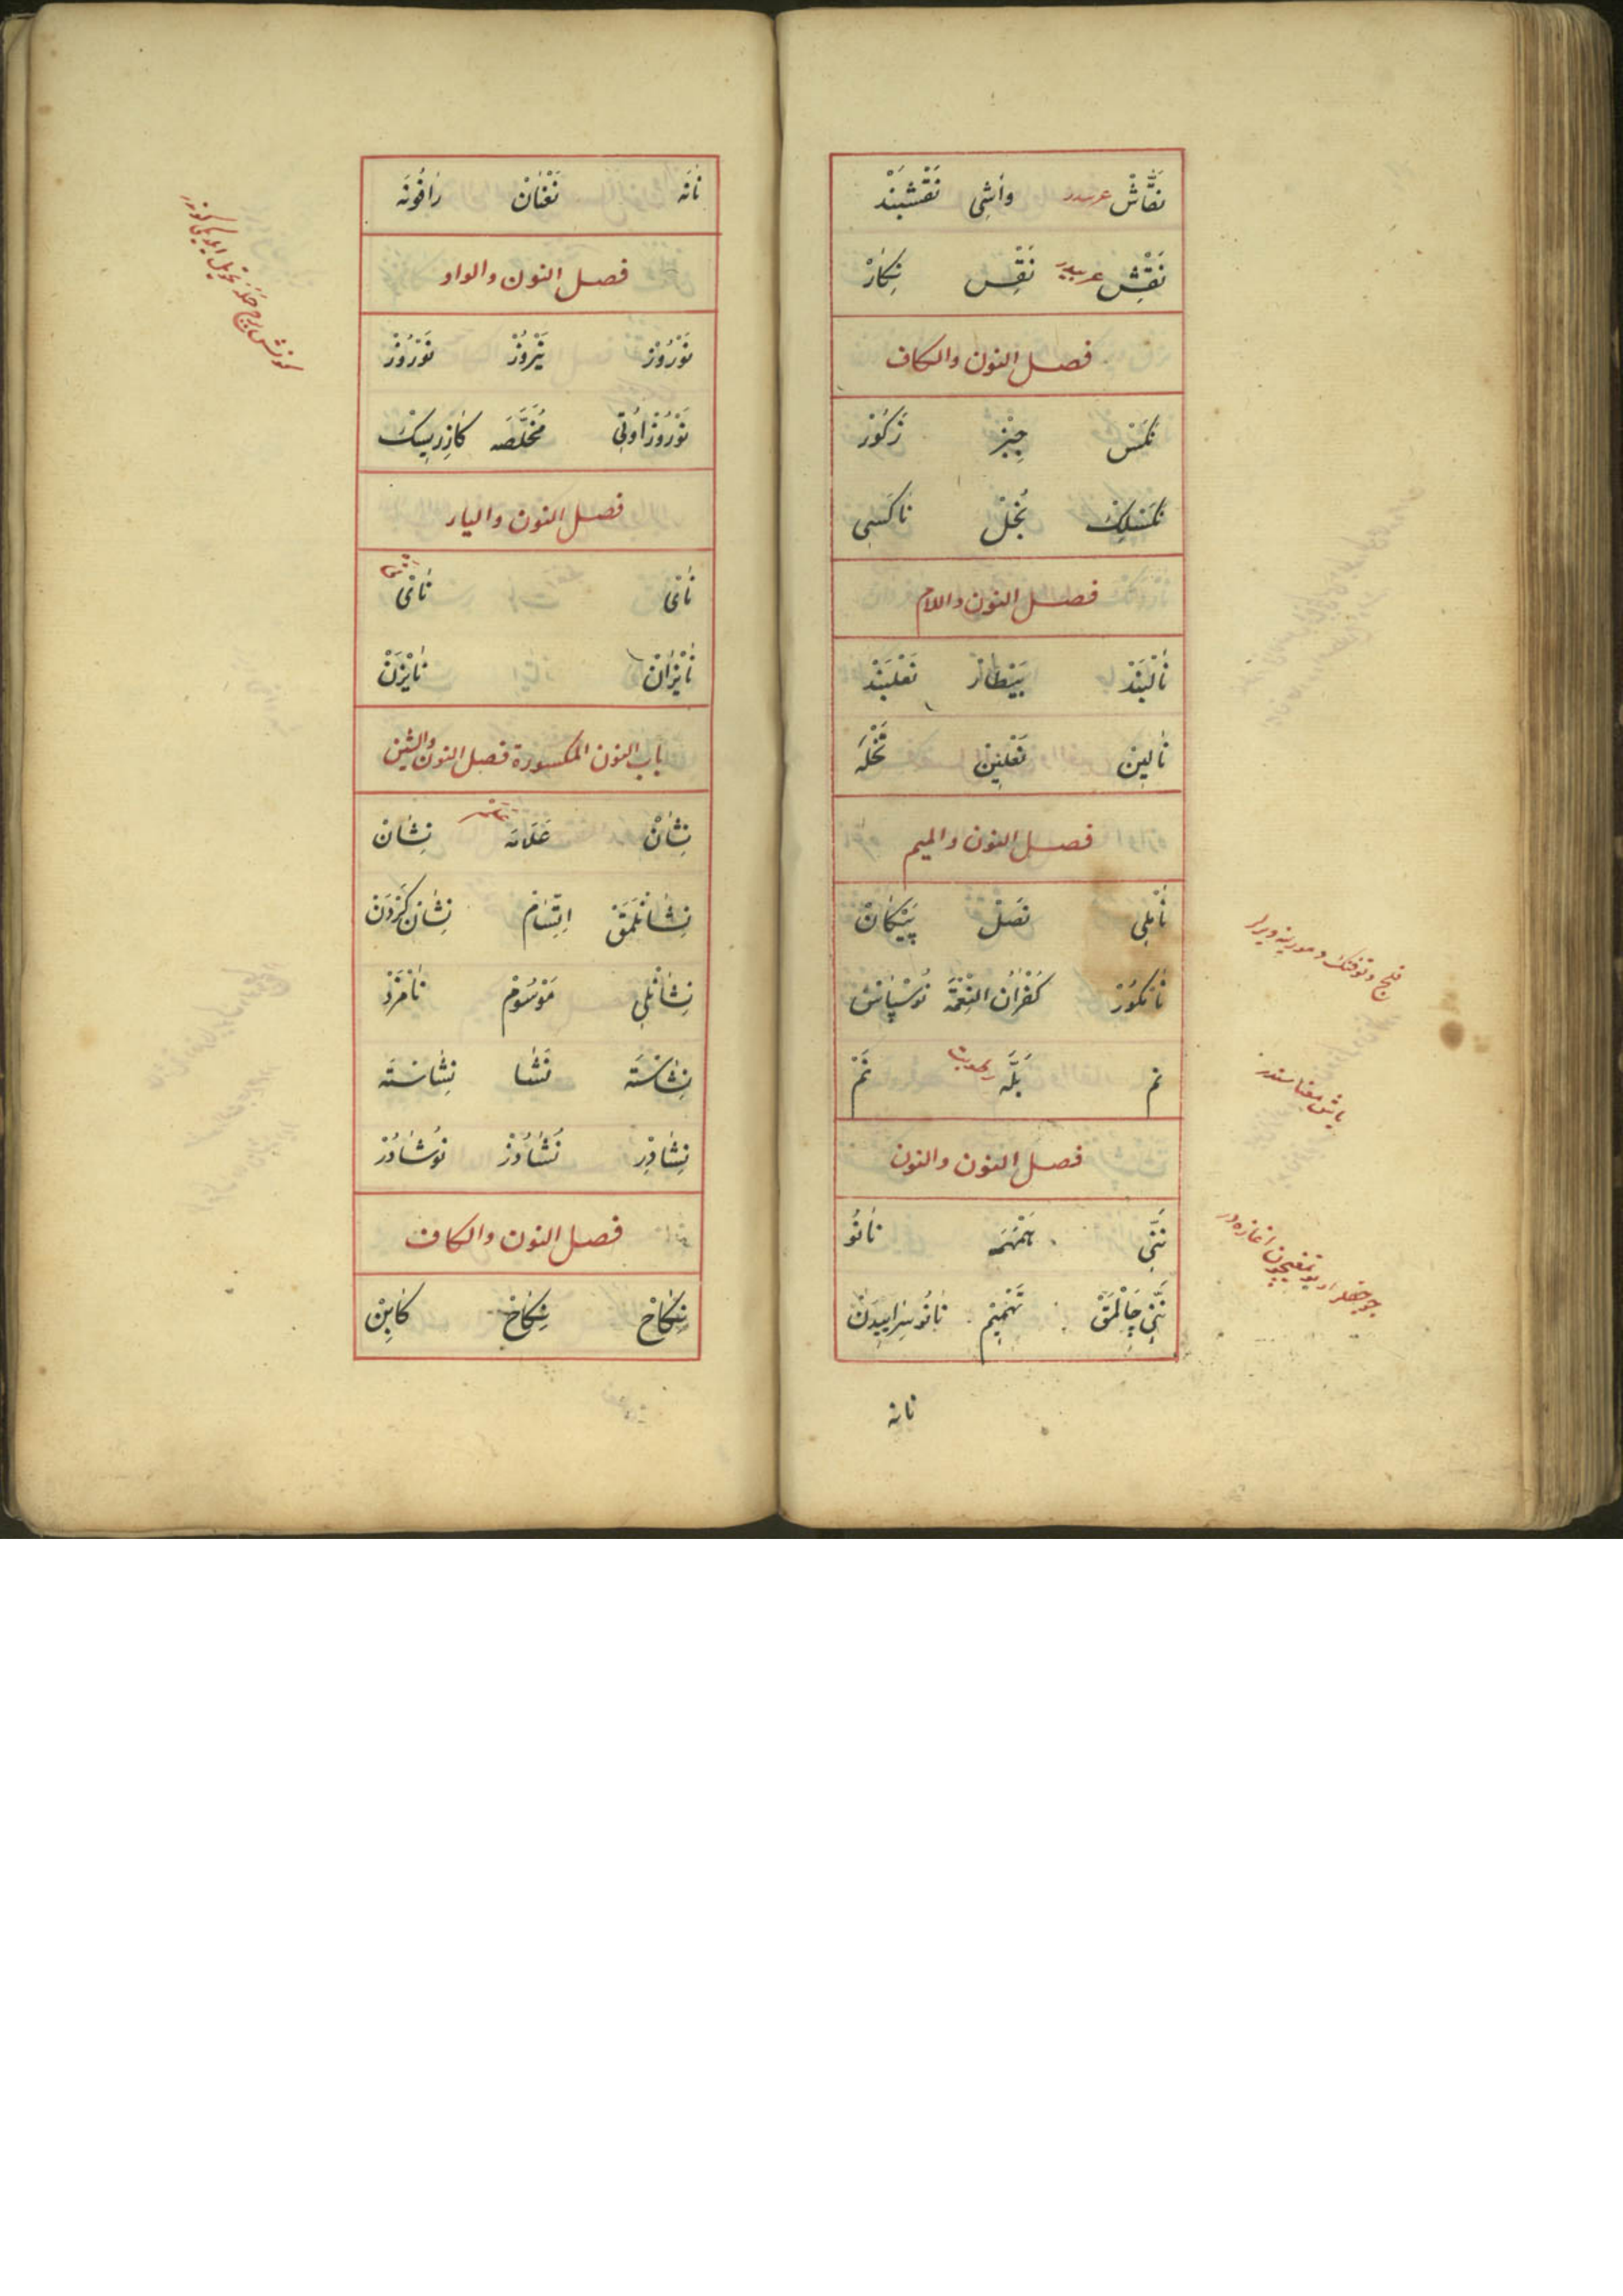 نَقَّاشْ عربیدر وَاشِی نَقْشبَنْدْ
نَقْشْ عربیدر نَقِس نِكَارْ
فصل النون والكاف
نَكَسْ جِبْز زَكُورْ
نَكَسْلِكْ بُخْلْ نَاكَسِی
فصل النون واللام
نَالْبَنْدْ بَيْطَارْ نَعْلبَنْدْ
نَالِين نَعْلَيْن تَخْلَه
فصل النون والميم
نَمْلِی نَصْلْ پَيْكَانْ
نَانْكُورْ كُفْرَانُ النِعْمَة نُوسْپَاس
نم بَلَّه رطوبت نَمْ
فصل النون والنون
نَنِّی هَمْهَمَه نَانُو
نَنِّی چَالْمَقْ تَهْمِيم نَانُو سَرَاييدَنْ
نانه
قلج و توفنك و مورينه ديرلر
ياش معناسندر
نَانَه نَعْنَانْ رَافُونَه
فصل النون والواو
نَوْرُوزْ نَيْرُوزْ نَوْرُوزْ
نَوْرُوزْ اُوتِی مُخَلَّصَه كَازِرِيسِكْ
فصل النون والياء
نَایْ نَایْ
نَايْزَانْ نَايْزَنْ
باب النون المكسورة فصل النون والشين
نِشَانْ عَلَامَه نِشَان
نِشَانْلَمَقْ اِتِّسَامْ نِشَان كَرْدَن
نِشَانْلِی مَوْسُومْ نَامْزَدْ
نِشَاسْتَه نَشَا نِشَاسْتَه
نِشَادِرْ نُشَادُرْ نُوشَادُرْ
فصل النون والكاف
نِكَاحْ نِكَاحْ كَابِينْ